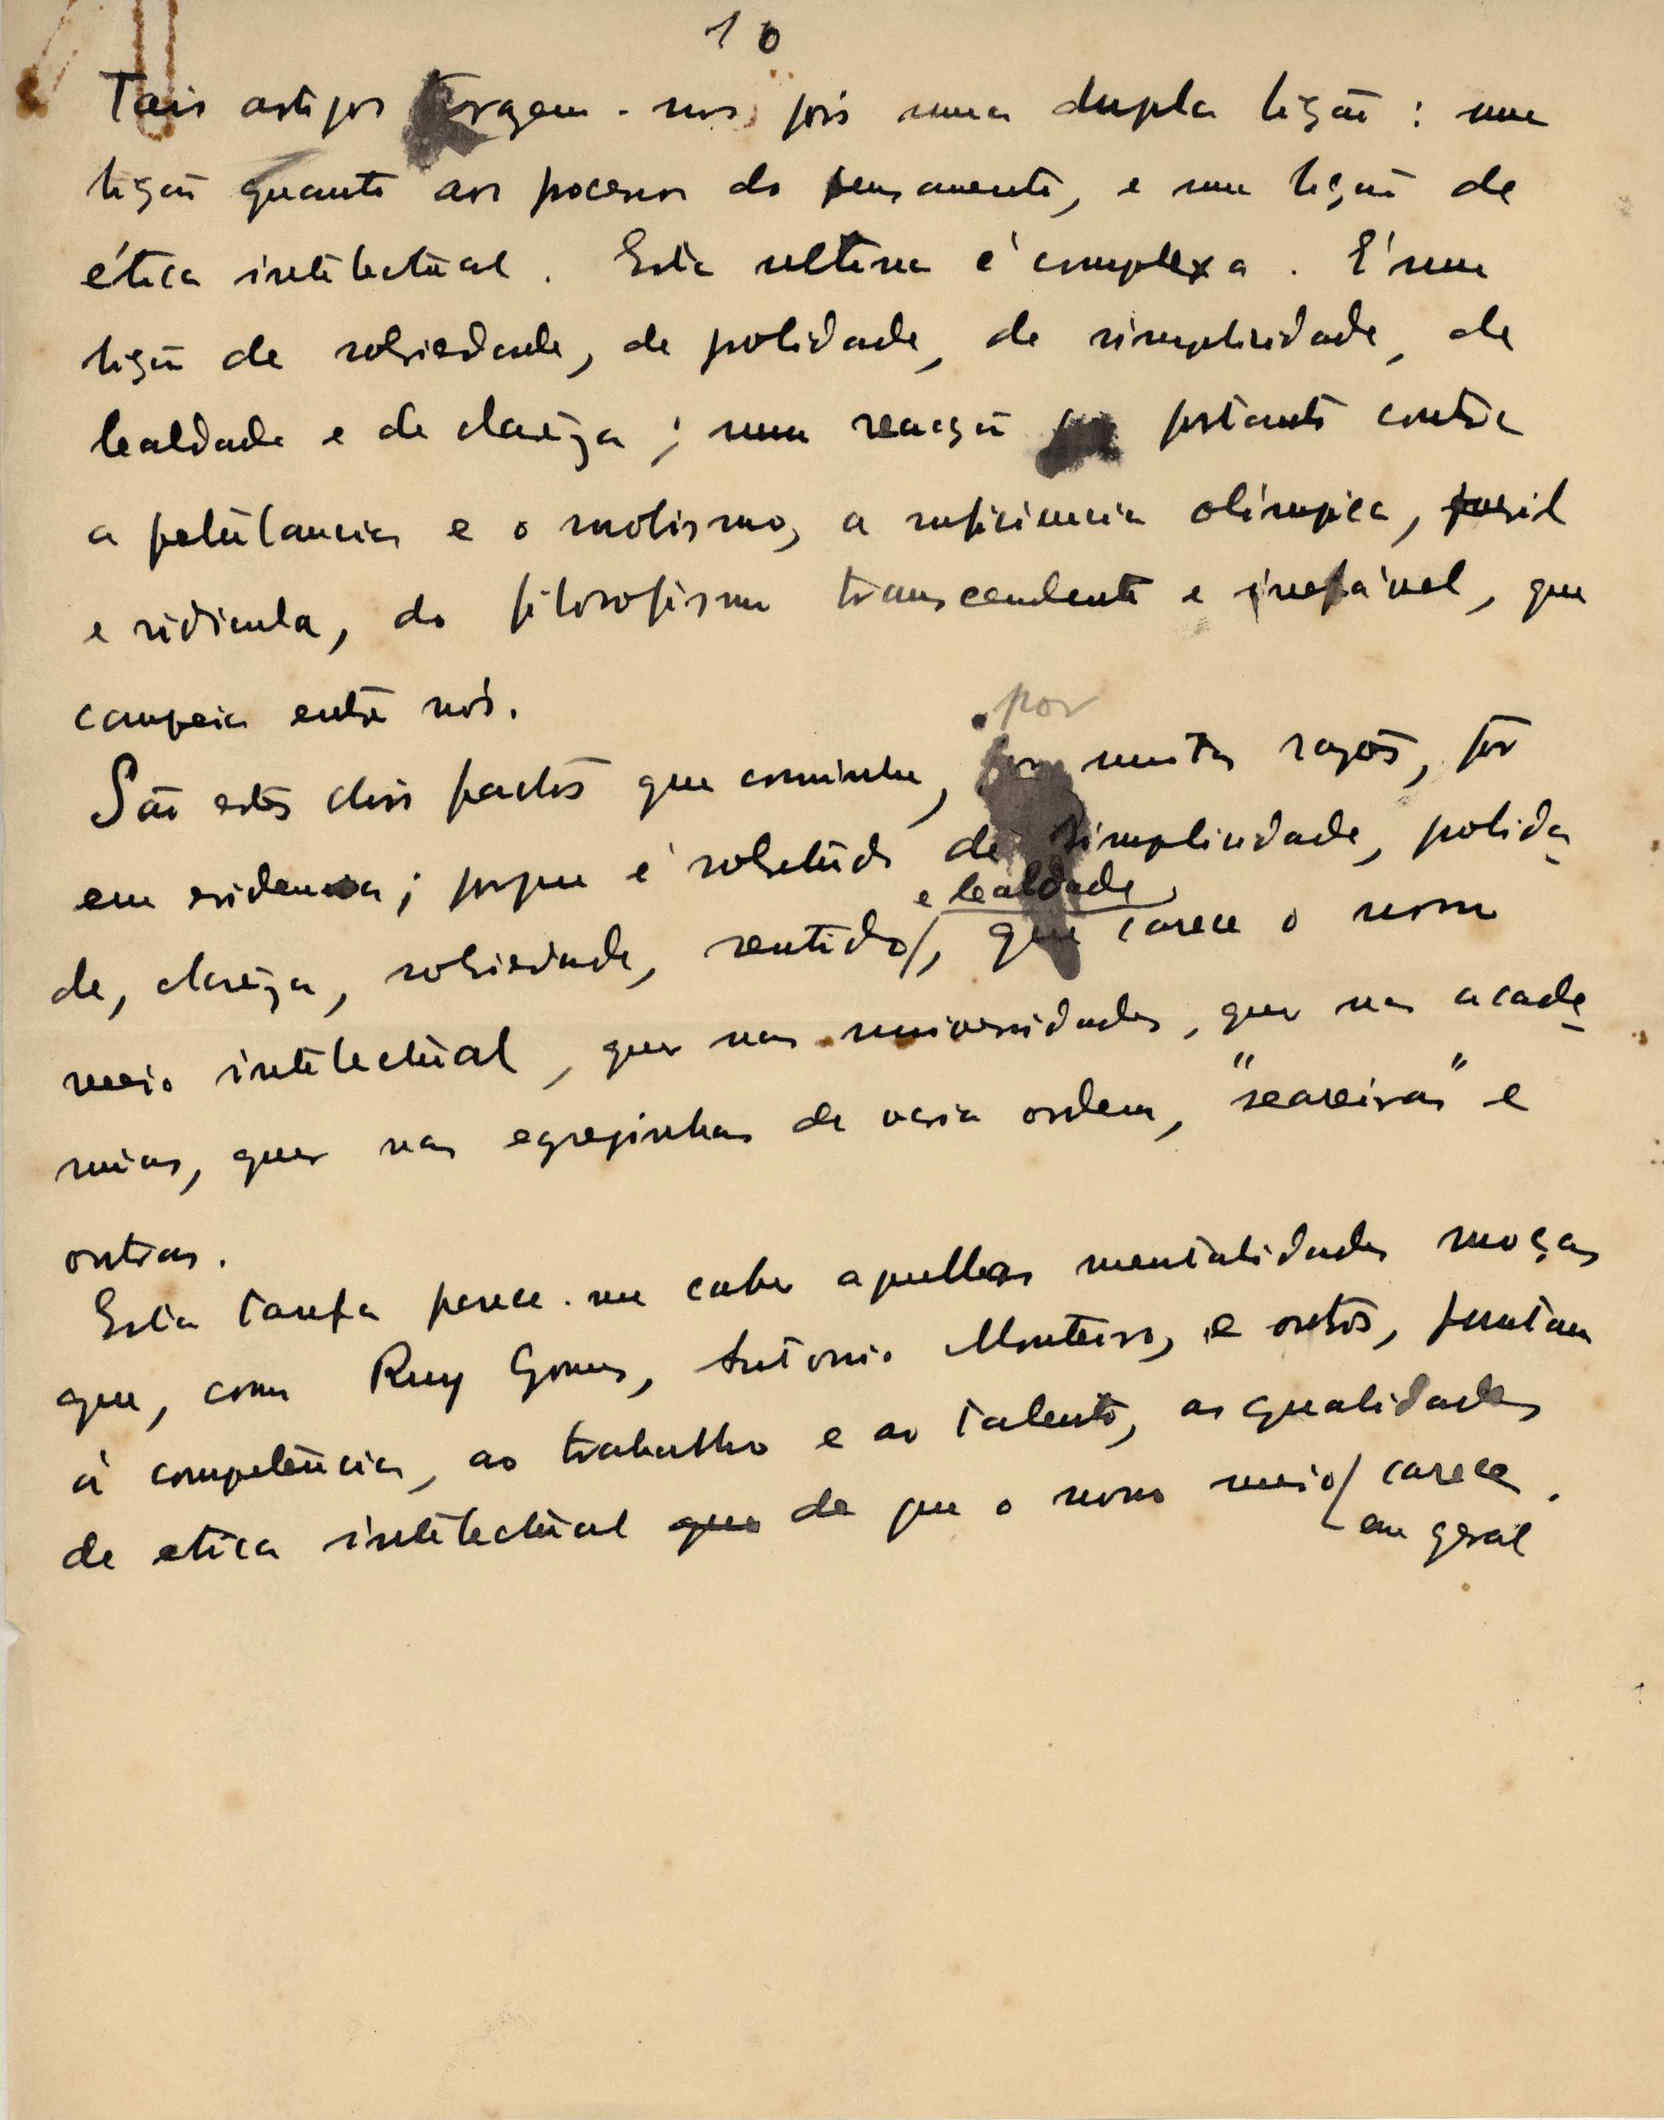 10
Tais artigos trazem-nos pois uma dupla lição: uma
lição quanto aos pocessos do pensamento, e uma lição de
ética intelectual. Esta ultima é complexa. É uma
lição de sobriedade, de polidade, de simplicidade, de
lealdade e de clareza; uma reacção portanto contra
a petulancia e o snobismo, a suficiencia olímpica,
e ridicula, do filosofismo transcendente e inefável, que
campeia entre nós.
São estes dois factos que convinha, por muitas razões, pôr
em evidencia; porque é sobretudo de simplicidade, polida
de, clareza, sobriedade, sentido e lealdade, que carece o nosso
meio intelectual, quer nas universidades, quer nas acade
mias, quer nas egrejinhas de varia ordem, "seareiras" e
outras.
Esta tarefa parece-me caber aquellas mentalidades moças
que, como Ruy Gomes, Antonio Monteiro, e outros, juntam
á competência, ao trabalho e ao talento, as qualidades
de etica intelectual que de que o nosso meio em geral carece.